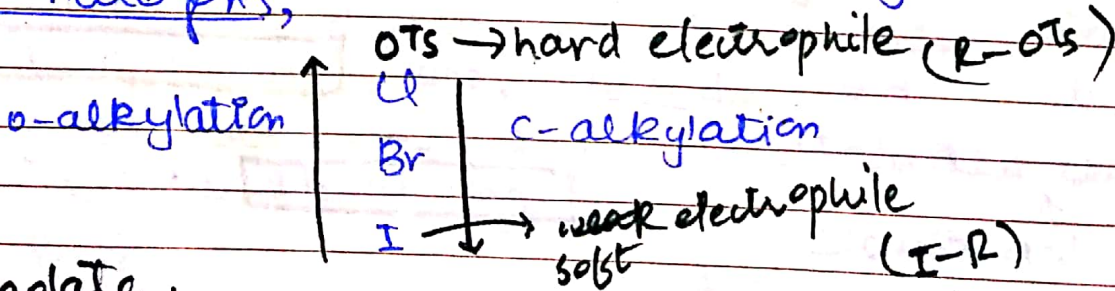 OTS → hard electrophile (R-OTs)
Cl
o-alkylation
C-alkylation
Br
I → electrophile
soft (I-R)